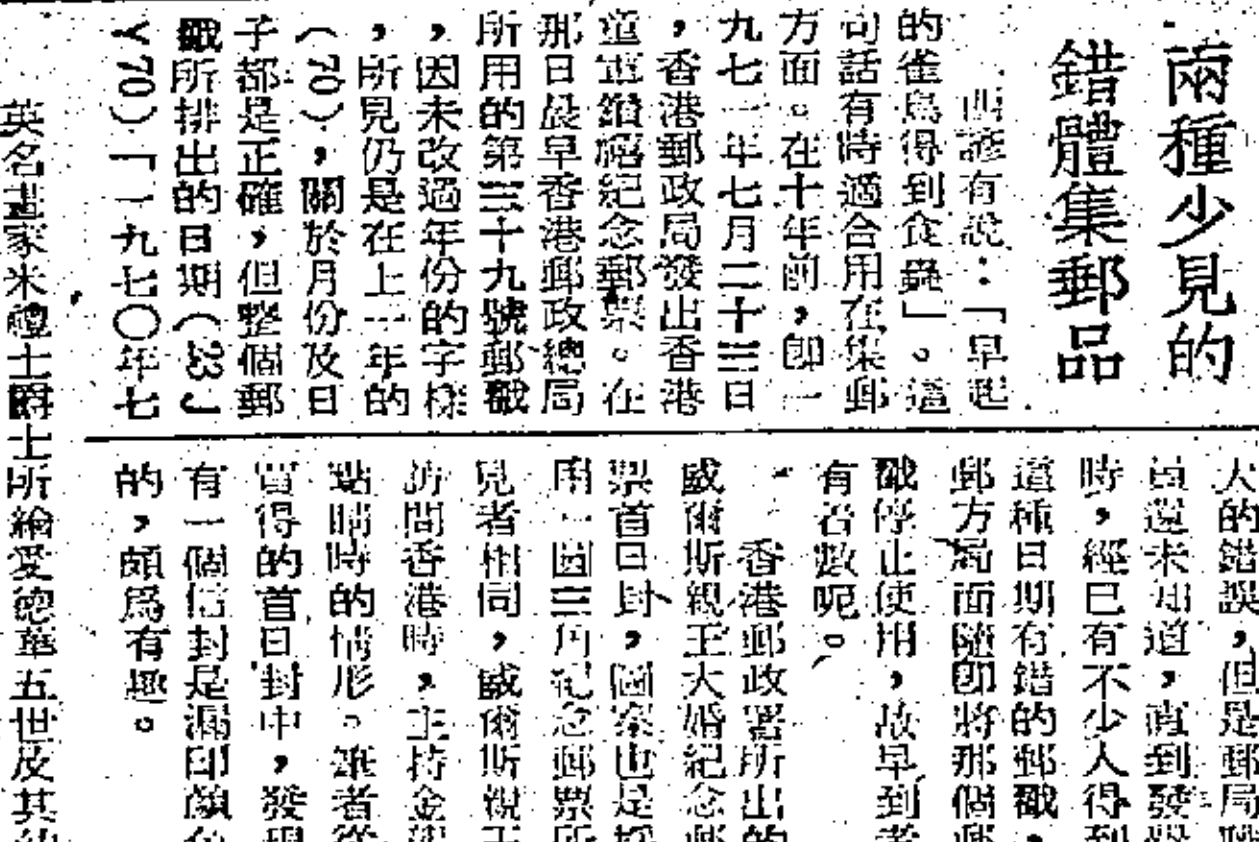 兩種少見的
錯體集郵品
西諺有說：「早起
的雀鳥得到食蟲」。這
句話有時適合用在集郵
方面。在十年前，即一
九七一年七月二十三日
，香港郵政局發出香港
童軍鑽禧紀念郵票。在
那日晨早香港郵政總局
所用的第三十九號郵戳
，因未改過年份的字樣
，所見仍是在上一年的
（70），關於月份及日
子都是正確，但整個郵
戳所排出的日期（23 J
Y 70）「一九七〇年七
大的錯誤，但是郵局職
員還未知道，直到發覺
時，經已有不少人得到
這種日期有錯的郵戳，
郵方局面隨即將那個郵
戳停止使用，故早到者
有着數呢。
香港郵政署所出的
威爾斯親王大婚紀念郵
票首日封，圖案也是採
用一圓三角紀念郵票所
見者相同，威爾斯親王
訪問香港時，主持金龍
點睛時的情形。筆者從
買得的首日封中，發現
有一個信封是漏印顏色
的，頗爲有趣。
英名畫家米禮士爵士所繪愛德華五世及其